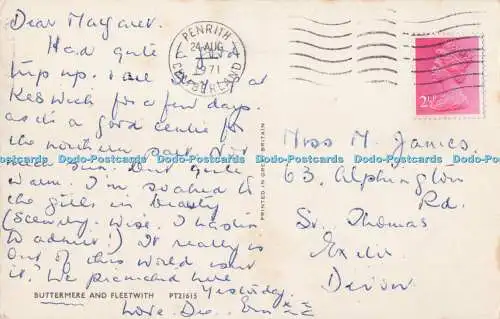 Dear Margaret.
Had quite a good
trip up. I am staying at
Keswick for a few days.
as it's a good centre for
the northern part. Not
much sun. But quite
warm. I'm soaked to
the gills in beauty
(Scenery. wise. I hasten
to admit!) It really is
out of this world isn't
it? We picnicked here
Yesterday.
Love. Des.
BUTTERMERE AND FLEETWITH PT21615
PRINTED IN GREAT BRITAIN
PENRITH
24 AUG
1971
CUMBERLAND
2½P
Miss M. James.
63. Alphington
Rd.
St. Thomas
Exeter
Devon
Dodo-Postcards Dodo-Postcards Dodo-Postcards Dodo-Postcards Dodo-Postcards Dodo-Postcards